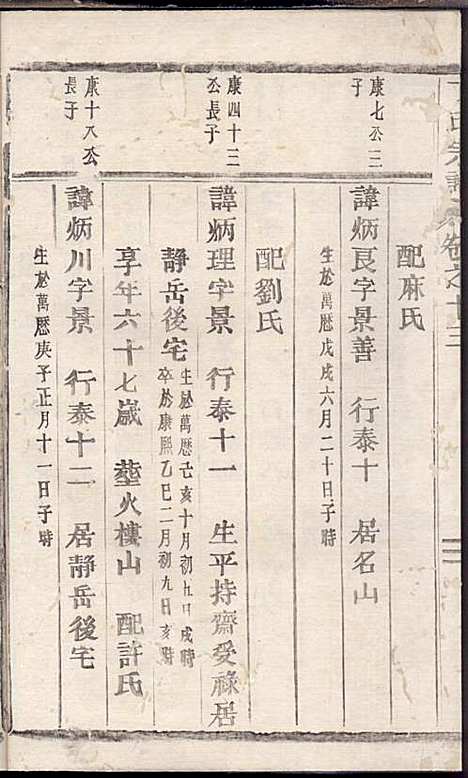 氏宗譜 卷之十三
配麻氏
康七公三子
諱炳良字景善 行泰十 居名山
生於萬曆戊戌六月二十日子時
配劉氏
康四十三公長子
諱炳理字景 行泰十一 生平持齋受祿居
靜岳後宅
生於萬曆己亥十月初九日戌時
卒於康熙乙巳二月初九日亥時
享年六十七歲 塟火樓山 配許氏
康十八公長子
諱炳川字景 行泰十二 居靜岳後宅
生於萬曆庚子正月十一日子時